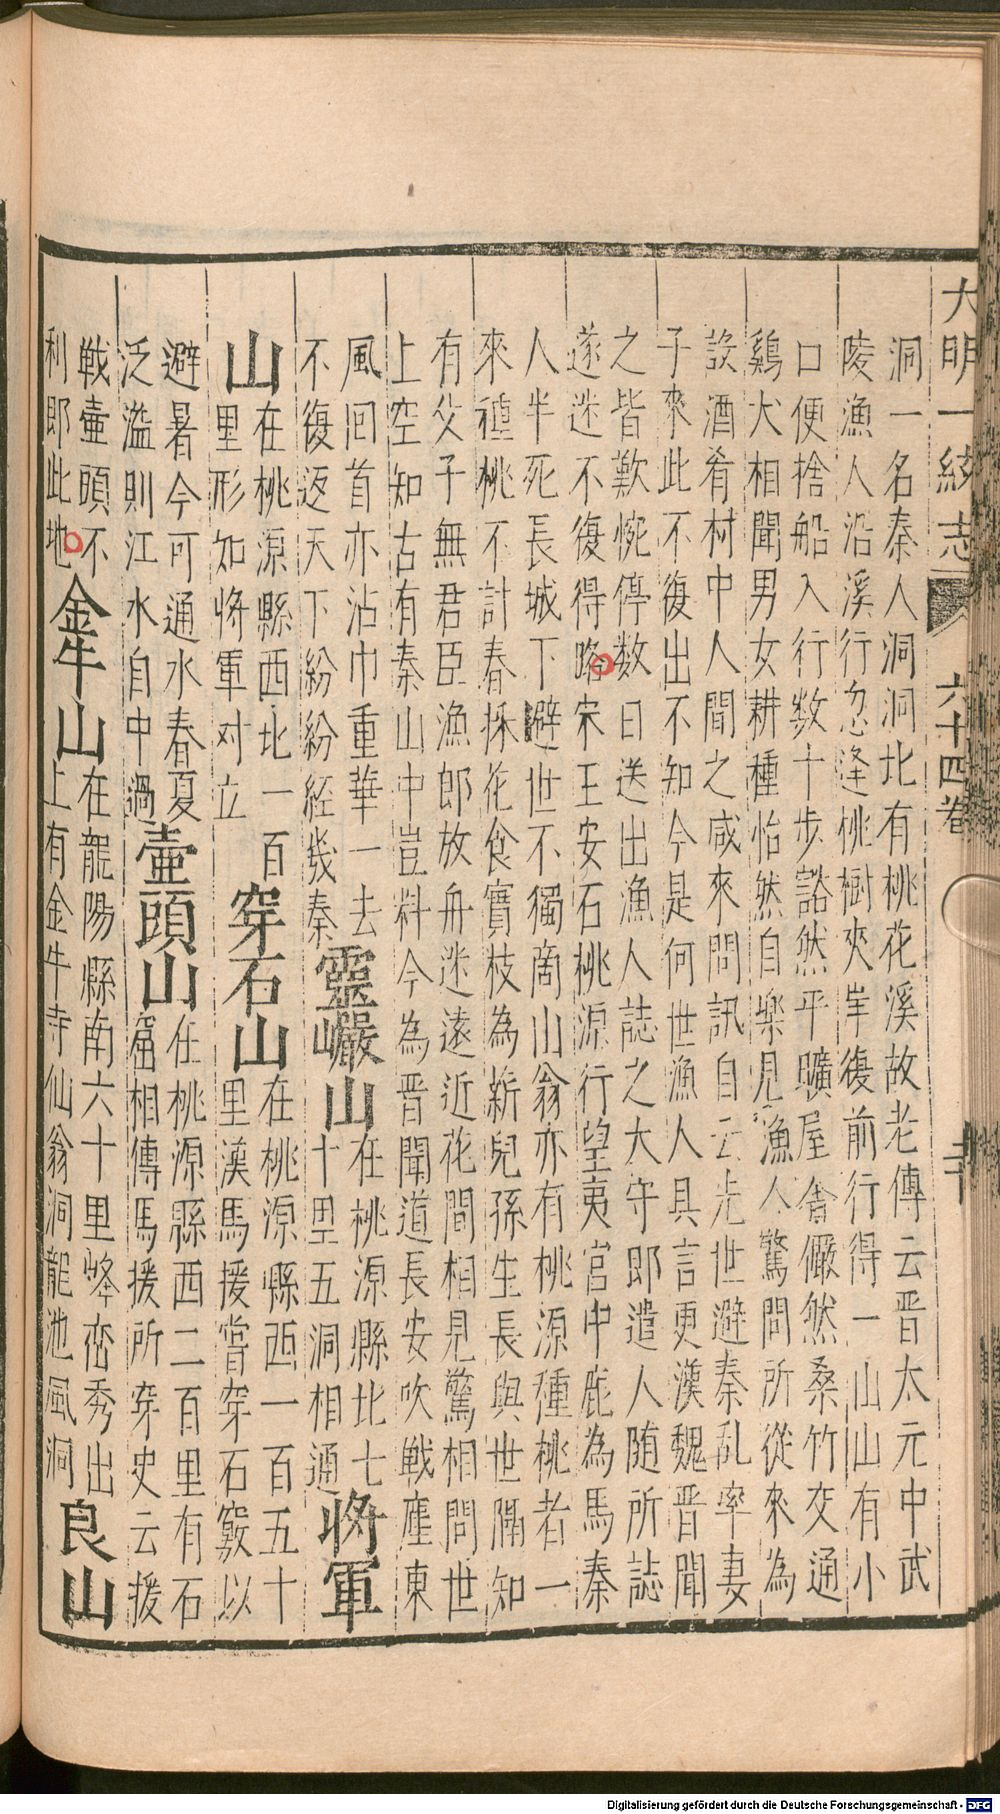 大明一統志
六十四卷
洞一名秦人洞洞北有桃花溪故老傳云晋太元中武
陵漁人沿溪行忽逢桃樹夾岸復前行得一山山有小
口便捨船入行数十步豁然平曠屋舍儼然桑竹交通
鷄犬相聞男女耕種怡然自樂見漁人驚問所從來為
設酒肴村中人聞之咸來問訊自云先世避秦乱率妻
子來此不復出不知今是何世漁人具言更漢魏晋聞
之皆歎惋停数日送出漁人誌之大守即遣人随所誌
遂迷不復得路宋王安石桃源行望夷宮中鹿為馬秦
人半死長城下避世不獨商山翁亦有桃源種桃者一
來種桃不計春採花食實枝為薪兒孫生長與世隔知
有父子無君臣漁郎放舟迷遠近花間相見驚相問世
上空知古有秦山中豈料今為晋聞道長安吹戦塵東
風回首亦沾巾重華一去
不復返天下紛紛経幾秦
靈巖山
在桃源縣北七
十里五洞相通
將軍
山
在桃源縣西北一百
里形如將軍对立
穿石山
在桃源縣西一百五十
里漢馬援嘗穿石竅以
避暑今可通水春夏
泛溢則江水自中過
壷頭山
在桃源縣西二百里有石
窟相傳馬援所穿史云援
戦壷頭不
利即此地
金牛山
在龍陽縣南六十里峰巒秀出
上有金牛寺仙翁洞龍池風洞
良山
Digitalisierung gefördert durch die Deutsche Forschungsgemeinschaft - DFG